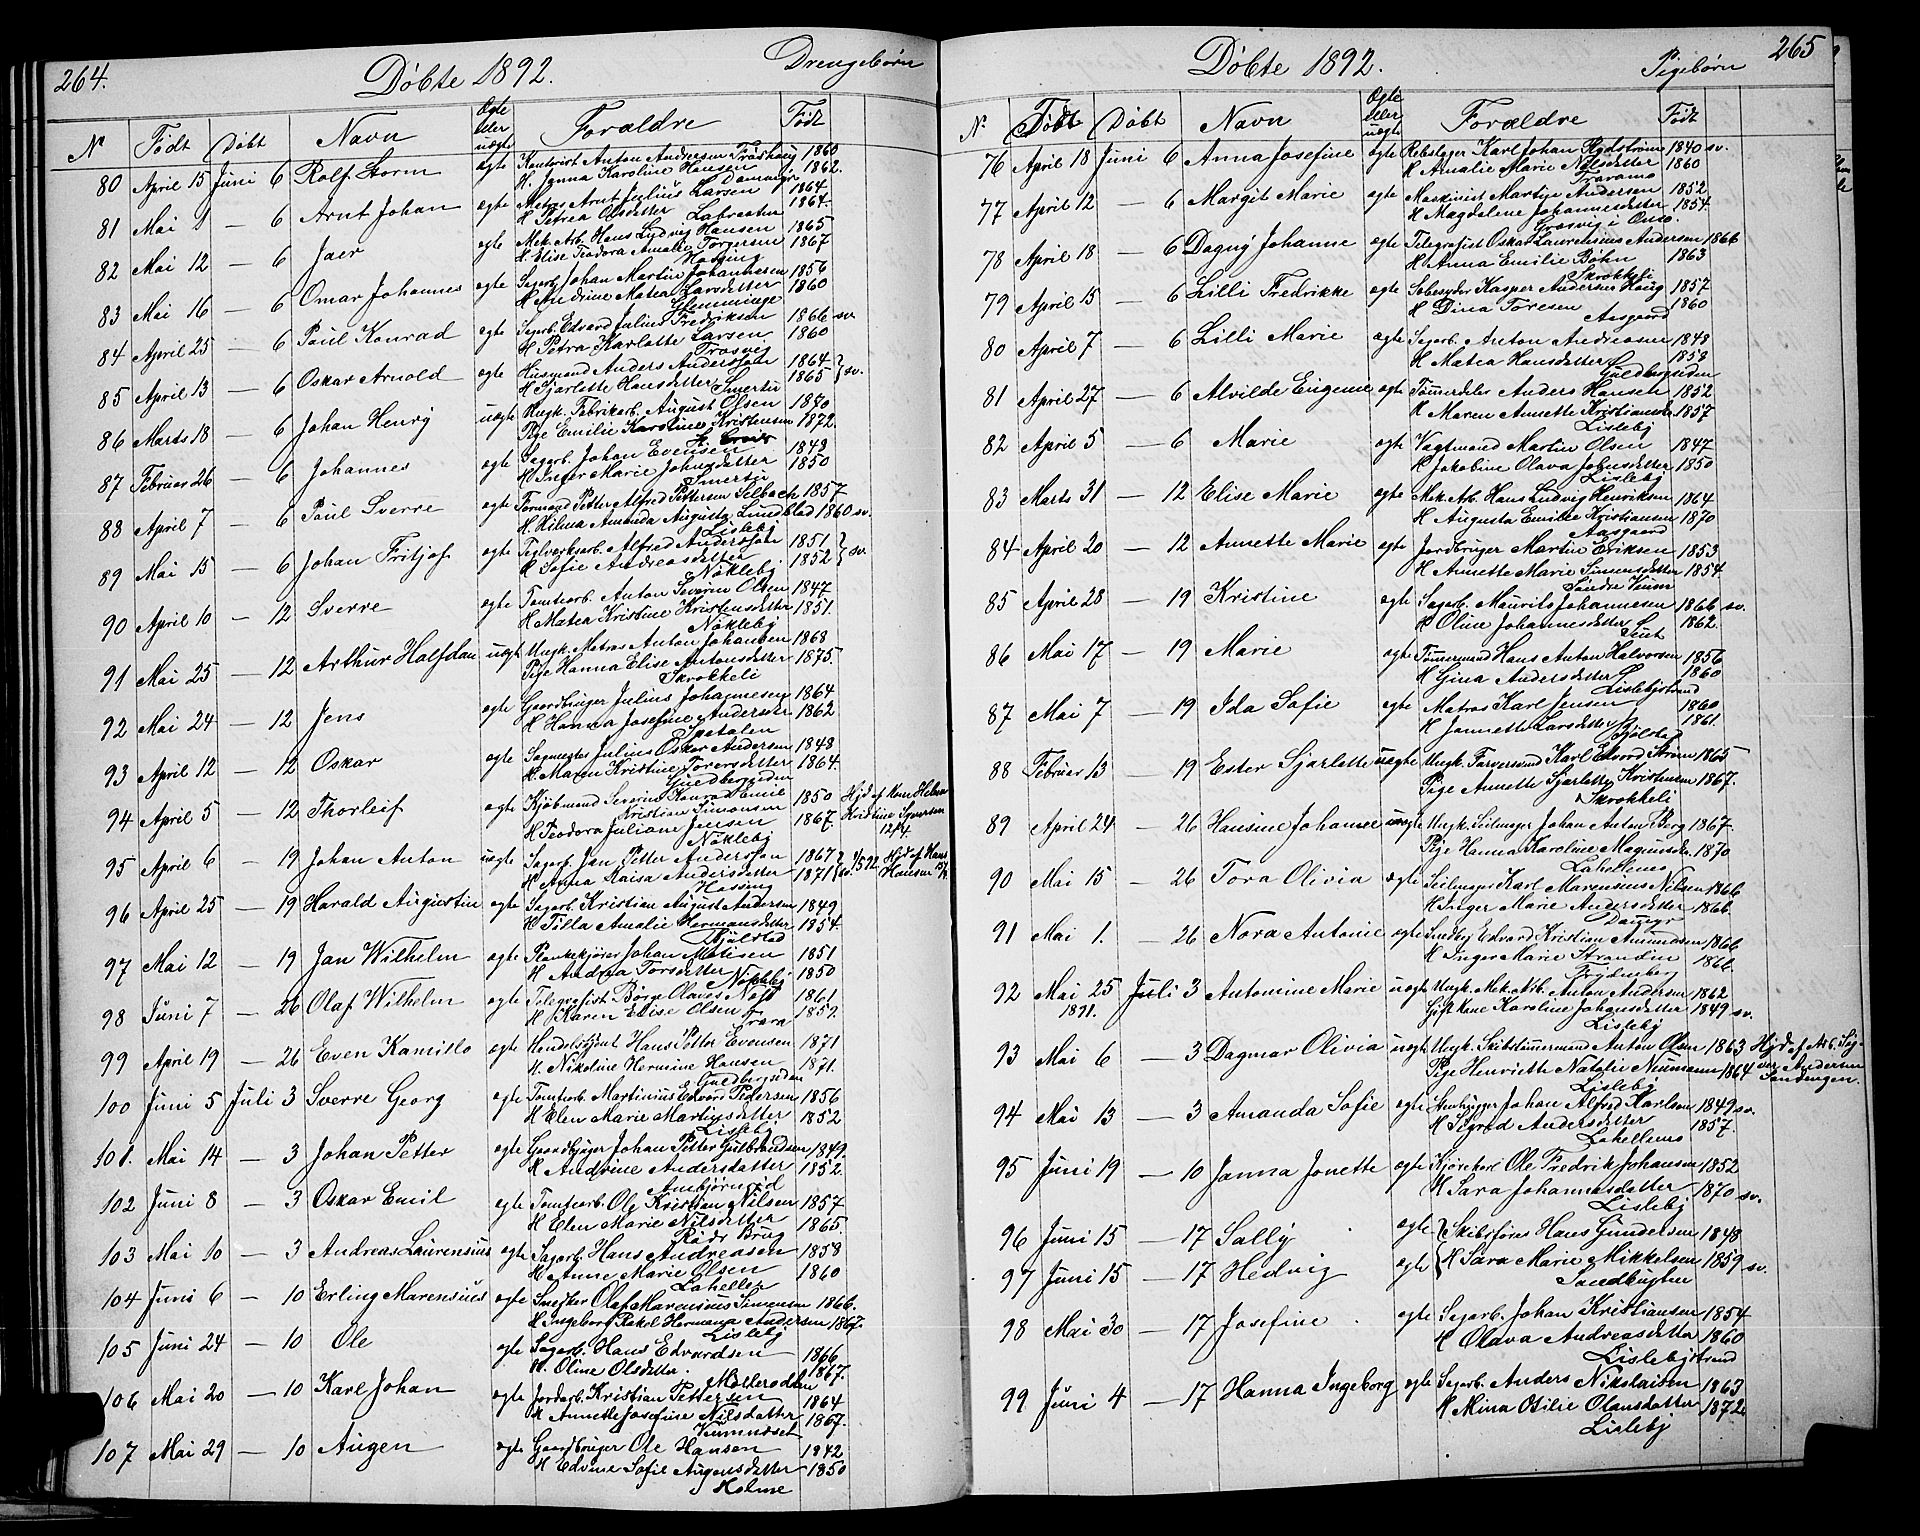 264.
Døbte 1892.
Drengebørn
N Født Døbt Navn Ægte eller uægte Forældre Født
80 April 15 Juni 6 Rolf Storm ægte Kontorist Anton Andersen Troshaug 1860
H. Janna Karoline Hansen 1862.
Dammyr
81 Mai 1 — 6 Arnt Johan ægte Matros Arnt Julius Larsen 1864.
H Petrea Olsdatter 1864.
82 Mai 12 — 6 Jaer ægte Mek. Arb. Hans Ludvig Hansen 1865
H. Elise Teodora Amalie Torgersen 1867
Hassing
83 Mai 16 — 6 Omar Johannes ægte Sagarb Johan Martin Johannesen 1856
H Andrine Matea Larsdatter 1860
Glemminge
84 April 25 — 6 Paul Konrad ægte Sagarb. Edvard Julius Fredriksen 1866 sv.
H Petra Karlotte Larsen 1860
Trosvig
85 April 13 — 6 Oskar Arnold ægte Husmand Anders Andersson 1864 } sv.
H Sjarlette Hansdatter 1865
Smertu
86 Marts 18 — 6 Johan Henry uægte Ungk. Fabrikarb. August Olsen 1870
Pige Emilie Karoline Kristensen 1872.
87 Februar 26 — 6 Johannes ægte Sagarb. Johan Evensen 1849
H Inger Marie Johnsdatter 1850
Smertu
88 April 7 — 6 Paul Sverre ægte Formand Petter Alfred Pettersen Selbach 1857
H. Hilma Amanda Augusta Lundblad 1860 sv.
Lisleby
89 Mai 15 — 6 Johan Fritjof ægte Teglverksarb. Alfred Andersson 1851 } sv.
H Sofie Andreasdatter 1852
Nøkleby
90 April 10 — 12 Sverre ægte Tomtearb. Anton Severin Olsen 1847
H Matea Kristine Kristensdatter 1851.
Nøkleby
91 Mai 25 — 12 Arthur Halfdan uægt Ungk. Matros Anton Johansen 1868
Pige Hanna Elise Antonsdatter 1875.
Skrokkeli
92 Mai 24 — 12 Jens ægte Gaardbruger Julius Johannesen 1864
H Hanna Josefine Andersen 1862
93 April 12 — 12 Oskar ægte Sagmester Julius Oskar Andersen 1848
H. Maren Kristine Torersdatter 1864.
Guldbergsiden
94 April 5 — 12 Thorleif ægte Kjøbmand Severin Konrad Emil 1850 Hjd af Kone Helene
Kristian Simonsen
H Teodora Juliane Jensen 1867. Kristine Syversen 12/4.
Nøkleby
95 April 6 — 19 Johan Anton uægte Sagarb. Jan Petter Andersson 1867 } 4/5 92 Hjd af Hans
H Anna Kaisa Andersdatter 1871 sv. Hansen
Hassing
96 April 25 — 19 Harald Augustin ægte Sagarb. Kristian August Andersen 1849
H Tilla Amalie Hermansdatter 1854.
Bjølstad
97 Mai 12 — 19 Jan Wilhelm ægte Plankekjører Johan Matisen 1851
H Andrea Torsdatter 1850
Nøkleby
98 Juni 7 — 26 Olaf Wilhelm ægte Telegrafist Børge Olaves Næss 1861
H Karen Elise Olsen 1859.
Trara
99 April 19 — 26 Even Kamillo ægte Handelsfgmt. Hans Petter Evensen 1871
H. Nikoline Hermine Hansen 1871.
Guldbergsiden
100 Juni 5 Juli 3 Sverre Georg ægte Tomtearb. Martinius Edvard Pedersen 1856
H Elen Marie Martinsdatter 1852
Lisleby
101. Mai 14 — 3 Johan Petter ægte Gaardbruger Johan Petter Gulbrandsen 1849.
H Andrine Andersdatter 1852.
Ambjørnrød
102 Juni 8 — 3 Oskar Emil ægte Tomtearb. Ole Kristian Nilsen 1857
H Elen Marie Nilsdatter 1865.
Rads Brug
103 Mai 10 — 3 Andreas Laurensius ægte Sagarb. Hans Andreasen 1858
H Anne Marie Olsen 1860
Lahellen
104 Juni 6 — 10 Erling Marensius ægte Snejker Olaf Marensius Simensen 1866.
H Ingeborg Rakel Hermana Andersen 1867.
Lisleby
105 Juni 24 — 10 Ole ægte Sagarb. Hans Edvardsen 1866
H. Oline Olsdatter. 1867.
Møllerodden
106 Mai 20 — 10 Karl Johan ægte Jordarb. Kristian Pettersen 1864
H Annette Josefine Nilsdatter 1867.
107 Mai 29 — 10 Augen ægte Gaardbruger Ole Hansen 1842
H Edvine Sofie Augensdatter 1850
Holme
265
Døbte 1892.
Pigebørn
N. Født Døbt Navn Ægte eller uægte Forældre Født
76 April 18 Juni 6 Anna Josefine ægte Rebslager Karl Johan Rydstrøm 1840 sv.
H Amalie Marie Nilsdatter 1860
77 April 12 — 6 Margit Marie ægte Maskinist Martin Andersen 1852
H Magdalene Johannesdatter 1854.
78 April 18 — 6 Dagny Johanne ægte Telegrafist Oskar Laurensius Andersen 1866
H Anna Emilie Bøhn 1863
Skrokkeli
79 April 15 — 6 Lilli Fredrikke ægte Kasper Andersen Haug 1857
H Dina Toresen 1860
Aasgaard
80 April 7 — 6 Lilli Marie ægte Sagarb. Anton Andreasen 1848
H Matea Hansdatter 1858
Guldbergsiden
81 April 27 — 6 Alvilde Eugenie ægte Tømmerdeler Anders Hansen 1852
H. Maren Annette Kristiansdr. 1857
Lisleby
82 April 5 — 6 Marie ægte Vagtmand Martin Olsen 1847
H Jakobine Olava Johnsdatter 1850
Lisleby
83 Marts 31 — 12 Elise Marie ægte Mek. Arb. Hans Ludvig Henriksen 1864
H Augusta Emilie Kristiansen 1870
Aasgaard
84 April 20 — 12 Annette Marie ægte Jordbruger Martin Eriksen 1853
H Annette Marie Simensdatter 1854
Søndre Veum
85 April 28 — 19 Kristine ægte Sagarb. Maurits Johannesen 1866 sv.
H Oline Johannesdatter 1862.
86 Mai 17 — 19 Marie ægte Tømmermand Hans Anton Halvorsen 1856
H Gina Andersdatter 1860
Lislebystrand
87 Mai 7 — 19 Ida Sofie ægte Matros Karl Jensen 1860
H Jannette Larsdatter 1861.
Bjølstad
88 Februar 13 19 Ester Sjarlette uægte Ungk. Farversvend Karl Edvard Strøm 1865
Pige Annette Sjarlette Kristensen 1867.
Skrokkeli
89 April 24 — 26 Hansine Johanne uægte Ungk. Seilmager Johan Anton Berg 1867.
Pige Hanna Karoline Magnusdr. 1870
Lahellens
90 Mai 15 — 26 Tora Olivia ægte Seilmager Karl Marensius Nilsen 1866
H Inger Marie Andersdatter 1866.
Dammyr
91 Mai 1. — 26 Nora Antonie ægte Snedker Edvard Kristian Amundsen 1866
H Inger Marie Strandin 1866.
Frydenberg
92 Mai 25 1891. Juli 3 Antonine Marie uægte Ungk. Mek. Arb. Anton Andersen 1862
Gift Kone Karoline Johansdatter 1849 sv.
Lisleby
93 Mai 6 — 3 Dagmar Olivia uægte Ungk. Skibstømmermand Anton Olsen 1863 Hjd af Arb. Syver Andersen
Pige Henriette Natalie Neumann 1864 Sandengen.
Lisleby
94 Mai 13 — 3 Amanda Sofie ægte Stenhugger Johan Alfred Karlson 1849 sv.
H Sigrid Andersdatter 1857.
Lahellens
95 Juni 19 — 10 Janna Jonette ægte Kjørekarl Ole Fredrik Johansen 1852
H Sara Johannesdatter 1870 sv.
Lisleby
96 Juni 15 — 17 Sally ægte { Skibsfører Hans Gundersen 1848
97 Juni 15 — 17 Hedvig ægte { H Sara Marie Mikkelsen 1859 sv.
Sandbugten
98 Mai 30 — 17 Josefine ægte Sagarb. Johan Kristiansen 1854
H Olava Andreasdatter 1860
Lislebystrand
99 Juni 4 — 17 Hanna Ingeborg ægte Sagarb. Anders Nikolaisen 1863
H Mina Otilie Olausdatter 1872
Lisleby